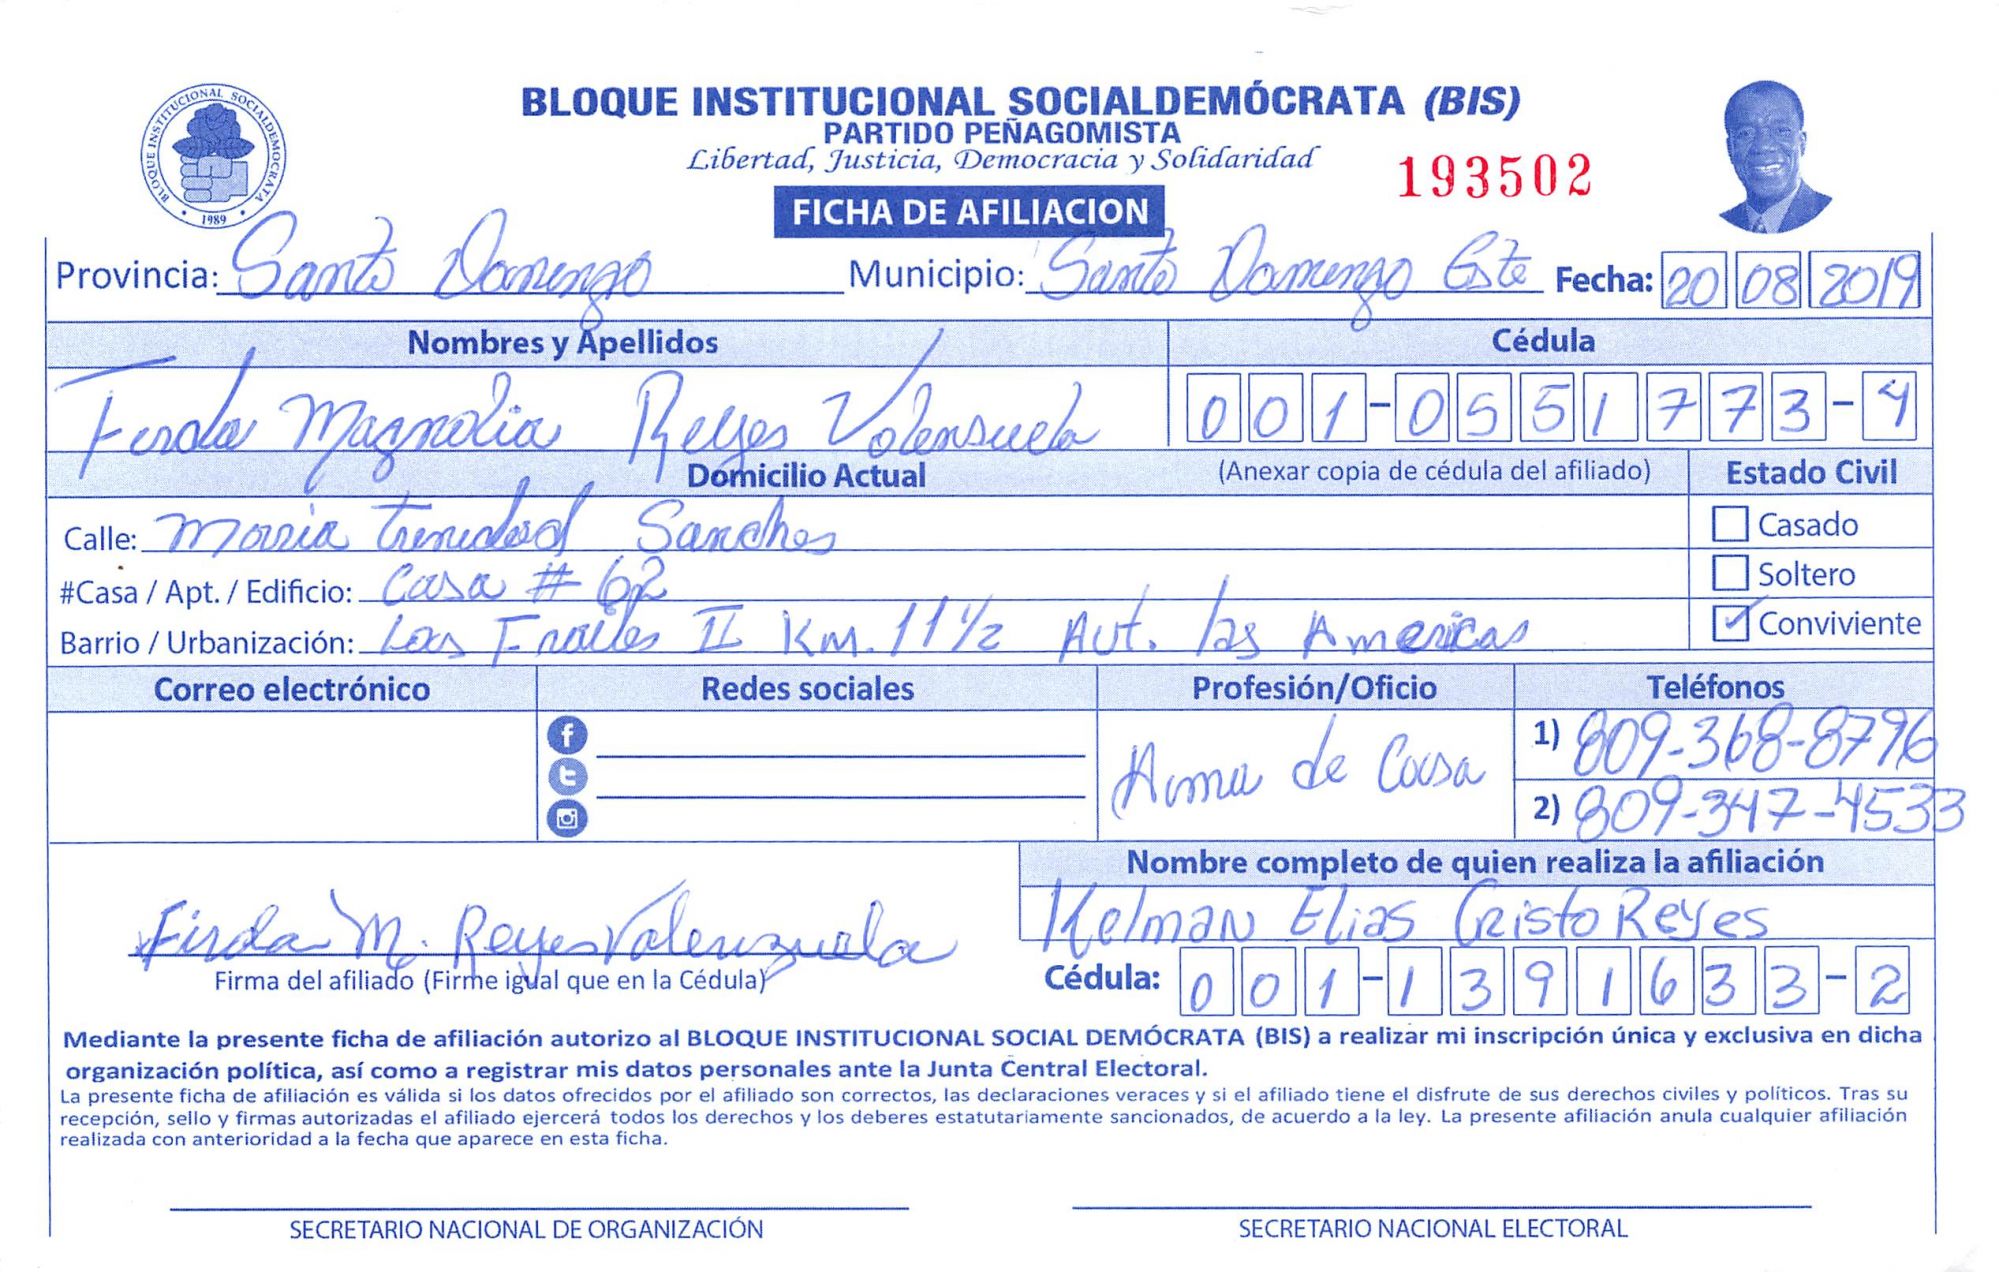 BLOQUE INSTITUCIONAL SOCIALDEMÓCRATA
1989
BLOQUE INSTITUCIONAL SOCIALDEMÓCRATA (BIS)
PARTIDO PEÑAGOMISTA
Libertad, Justicia, Democracia y Solidaridad
193502
FICHA DE AFILIACION
Provincia: Santo Domingo Municipio: Santo Domingo Este Fecha: 20 08 2019
Nombres y Apellidos Cédula
Firda Magnolia Reyes Valensuela 001-0551773-4
Domicilio Actual (Anexar copia de cédula del afiliado) Estado Civil
Calle: Maria trenidad Sanches Casado
#Casa / Apt. / Edificio: Casa # 62 Soltero
Barrio / Urbanización: Los Frailes II Km. 11 1/2 Aut. las Americas Conviviente
Correo electrónico Redes sociales Profesión/Oficio Teléfonos
Ama de Casa 1) 809-368-8796
2) 809-347-4533
Nombre completo de quien realiza la afiliación
Kelman Elias Cristo Reyes
Firda M. Reyes Valenzuela
Firma del afiliado (Firme igual que en la Cédula) Cédula: 001-1391633-2
Mediante la presente ficha de afiliación autorizo al BLOQUE INSTITUCIONAL SOCIAL DEMÓCRATA (BIS) a realizar mi inscripción única y exclusiva en dicha
organización política, así como a registrar mis datos personales ante la Junta Central Electoral.
La presente ficha de afiliación es válida si los datos ofrecidos por el afiliado son correctos, las declaraciones veraces y si el afiliado tiene el disfrute de sus derechos civiles y políticos. Tras su
recepción, sello y firmas autorizadas el afiliado ejercerá todos los derechos y los deberes estatutariamente sancionados, de acuerdo a la ley. La presente afiliación anula cualquier afiliación
realizada con anterioridad a la fecha que aparece en esta ficha.
SECRETARIO NACIONAL DE ORGANIZACIÓN SECRETARIO NACIONAL ELECTORAL